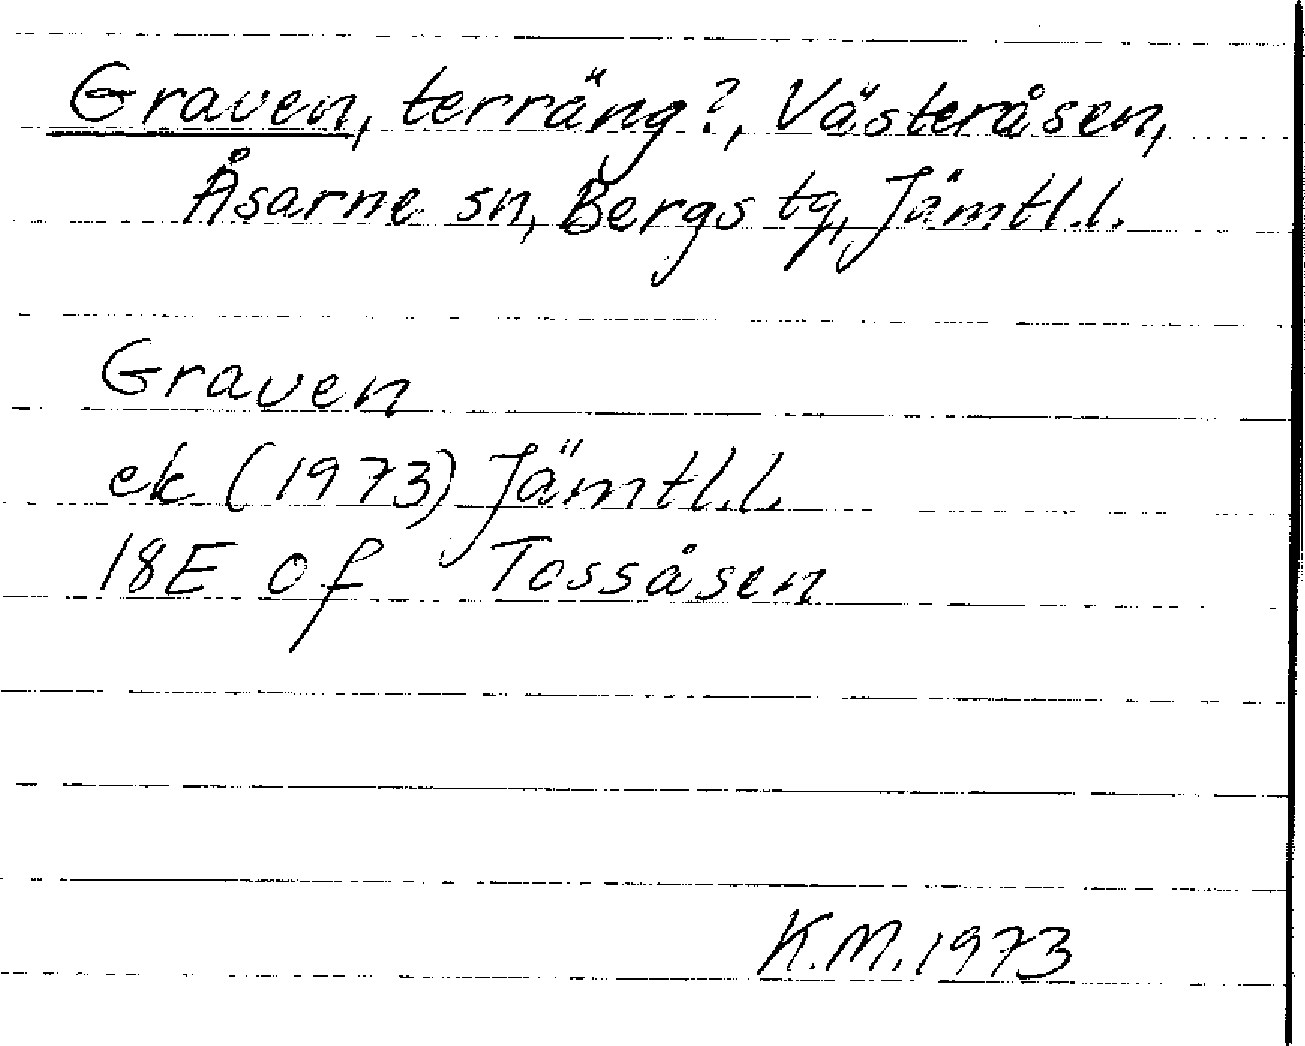 Graven, terräng?, Västeråsen,
Åsarne sn, Bergs tg, Jämtl.l.
Graven
ek (1973) Jämtl.l.
18E of Tossåsen
K.M. 1973